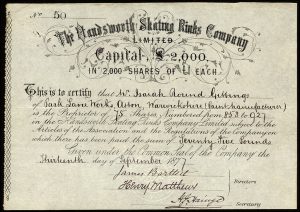 No. 50
The Handsworth Skating Rinks Company
LIMITED
Capital, £2,000.
IN 2,000 SHARES OF £1 EACH.
This is to certify that Mr. Isaiah Round
of Park Lane Works Aston, Warwickshire
is the Proprietor of 75 Shares Numbered from 853 to 927
in the Handsworth Skating Rinks Company Limited subject to the
Articles of the Association and the Regulations of the Company on
which there has been paid the sum of Seventy Five Pounds
Given under the Common Seal of the Company the
Thirteenth day of September 1877
James Bartlett
Henry Matthews
Directors
Secretary